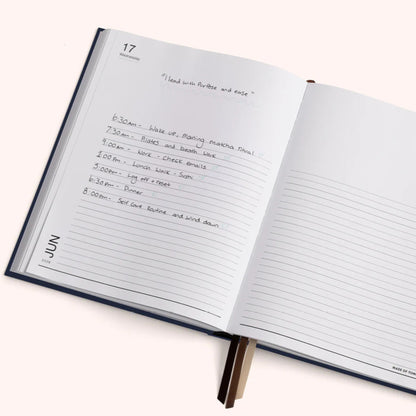 17
WEDNESDAY
"I lead with Purpose and ease"
6:30AM - Wake up, Morning matcha Ritual
7:30AM - Pilates and breath work
9:00am - Work - Check emails
1:00pm - Lunch Walk - 5km
5:00pm - Log off + reset
6:30pm - Dinner
8:00pm - Self Care Routine and Wind down
JUN
MADE OF TOM